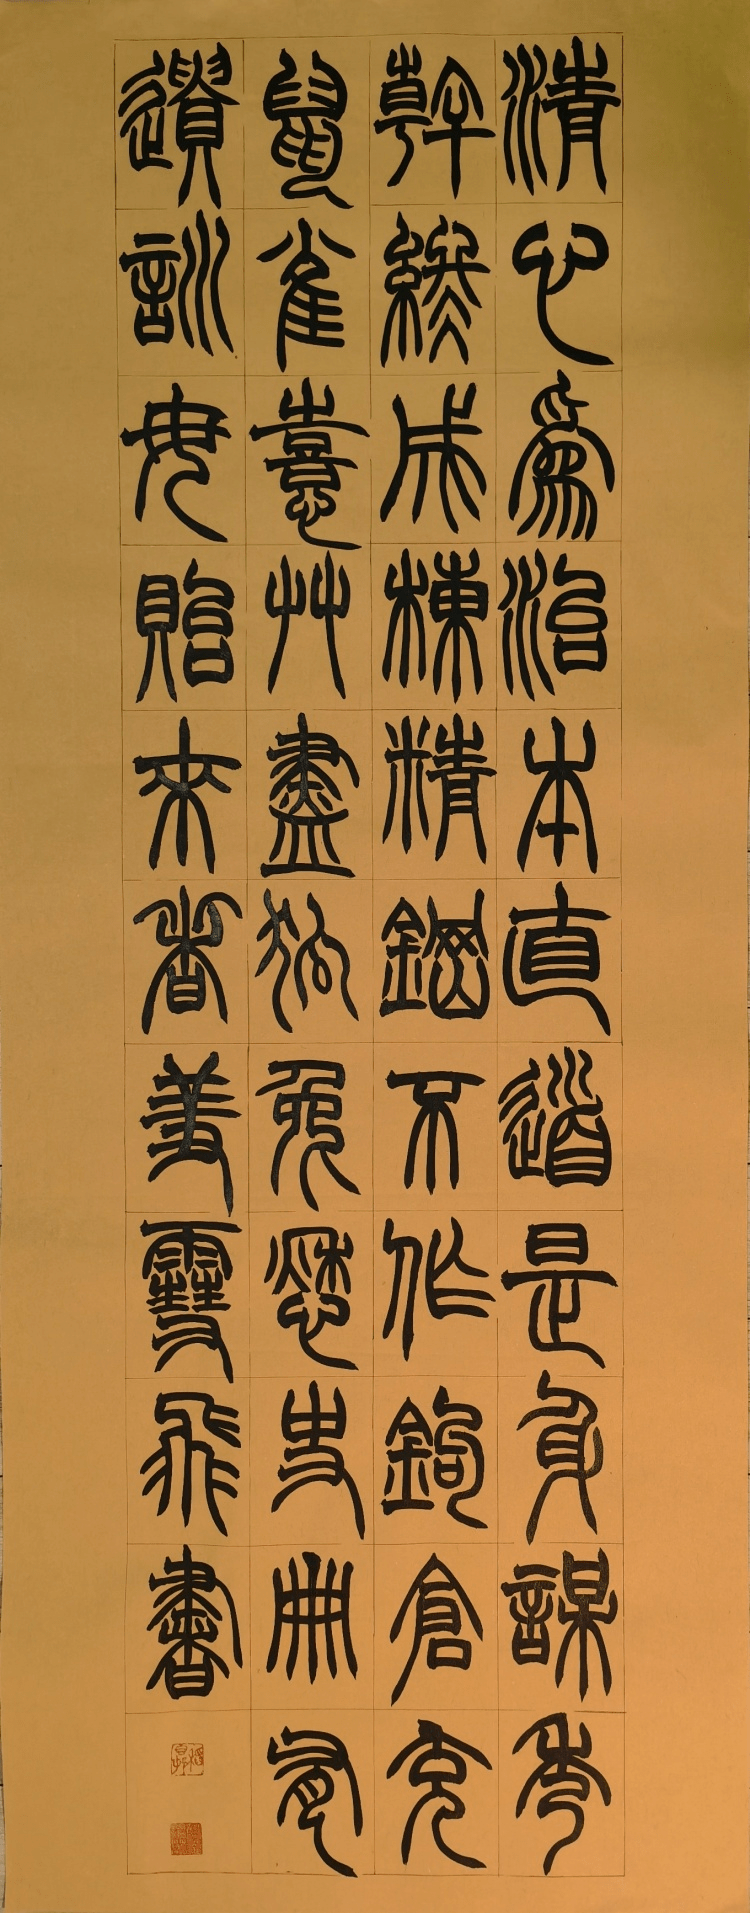 清心爲治本直道是身謀秀
幹終成棟精鋼不作鉤倉充
鼠雀憙艸盡狐兔愁史冊有
遺訓毋貽來者羞雪飛書